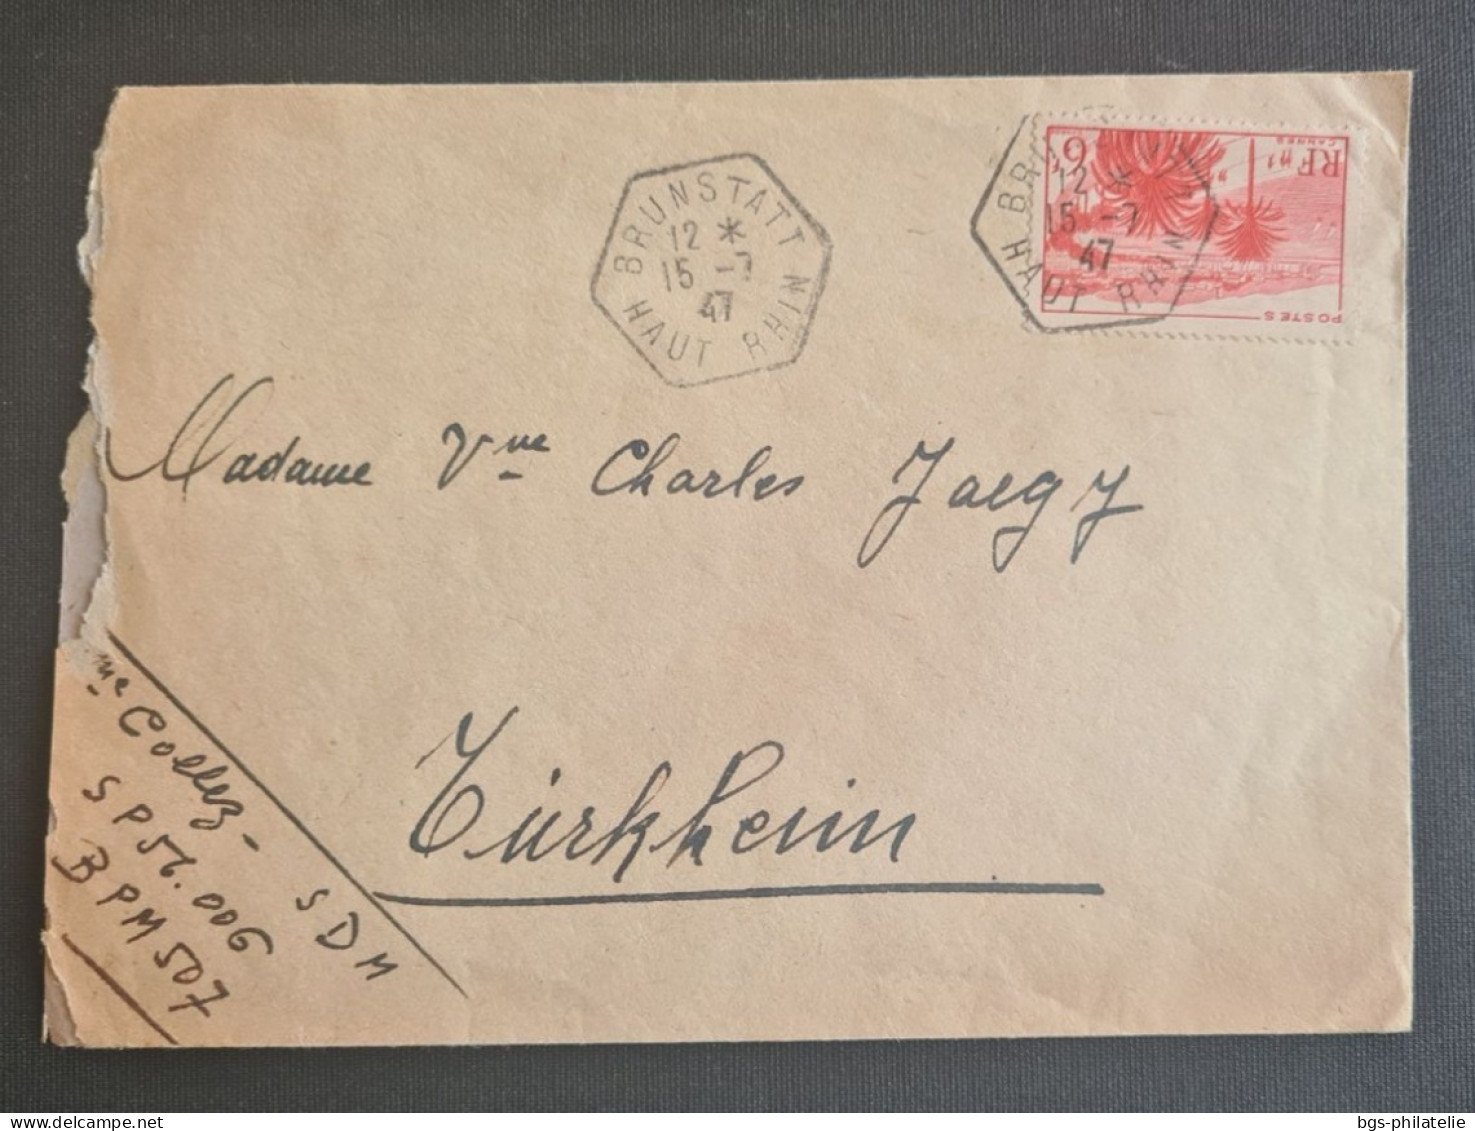 BRUNSTATT
12 *
15 - 7
47
HAUT RHIN
BRUNSTATT
12 *
15 - 7
47
HAUT RHIN
RF
6F
CANNES
POSTES
Madame Vve Charles Jaegy
Türkheim
me Collez -
SP 56.006
BPM 507
SDM
bgs-philatelie